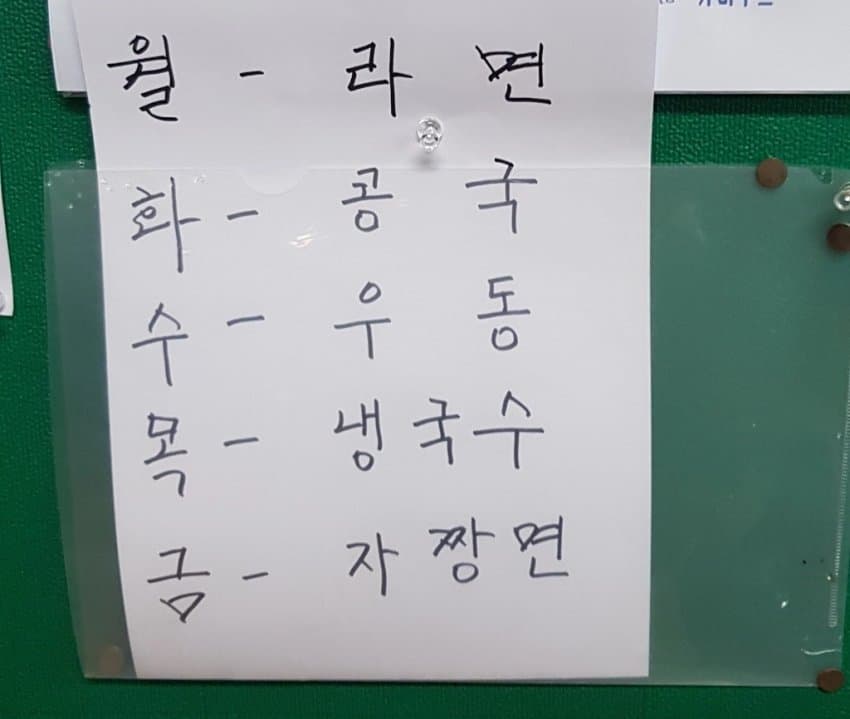 월 - 라면
화 - 콩국
수 - 우동
목 - 냉국수
금 - 자짱면